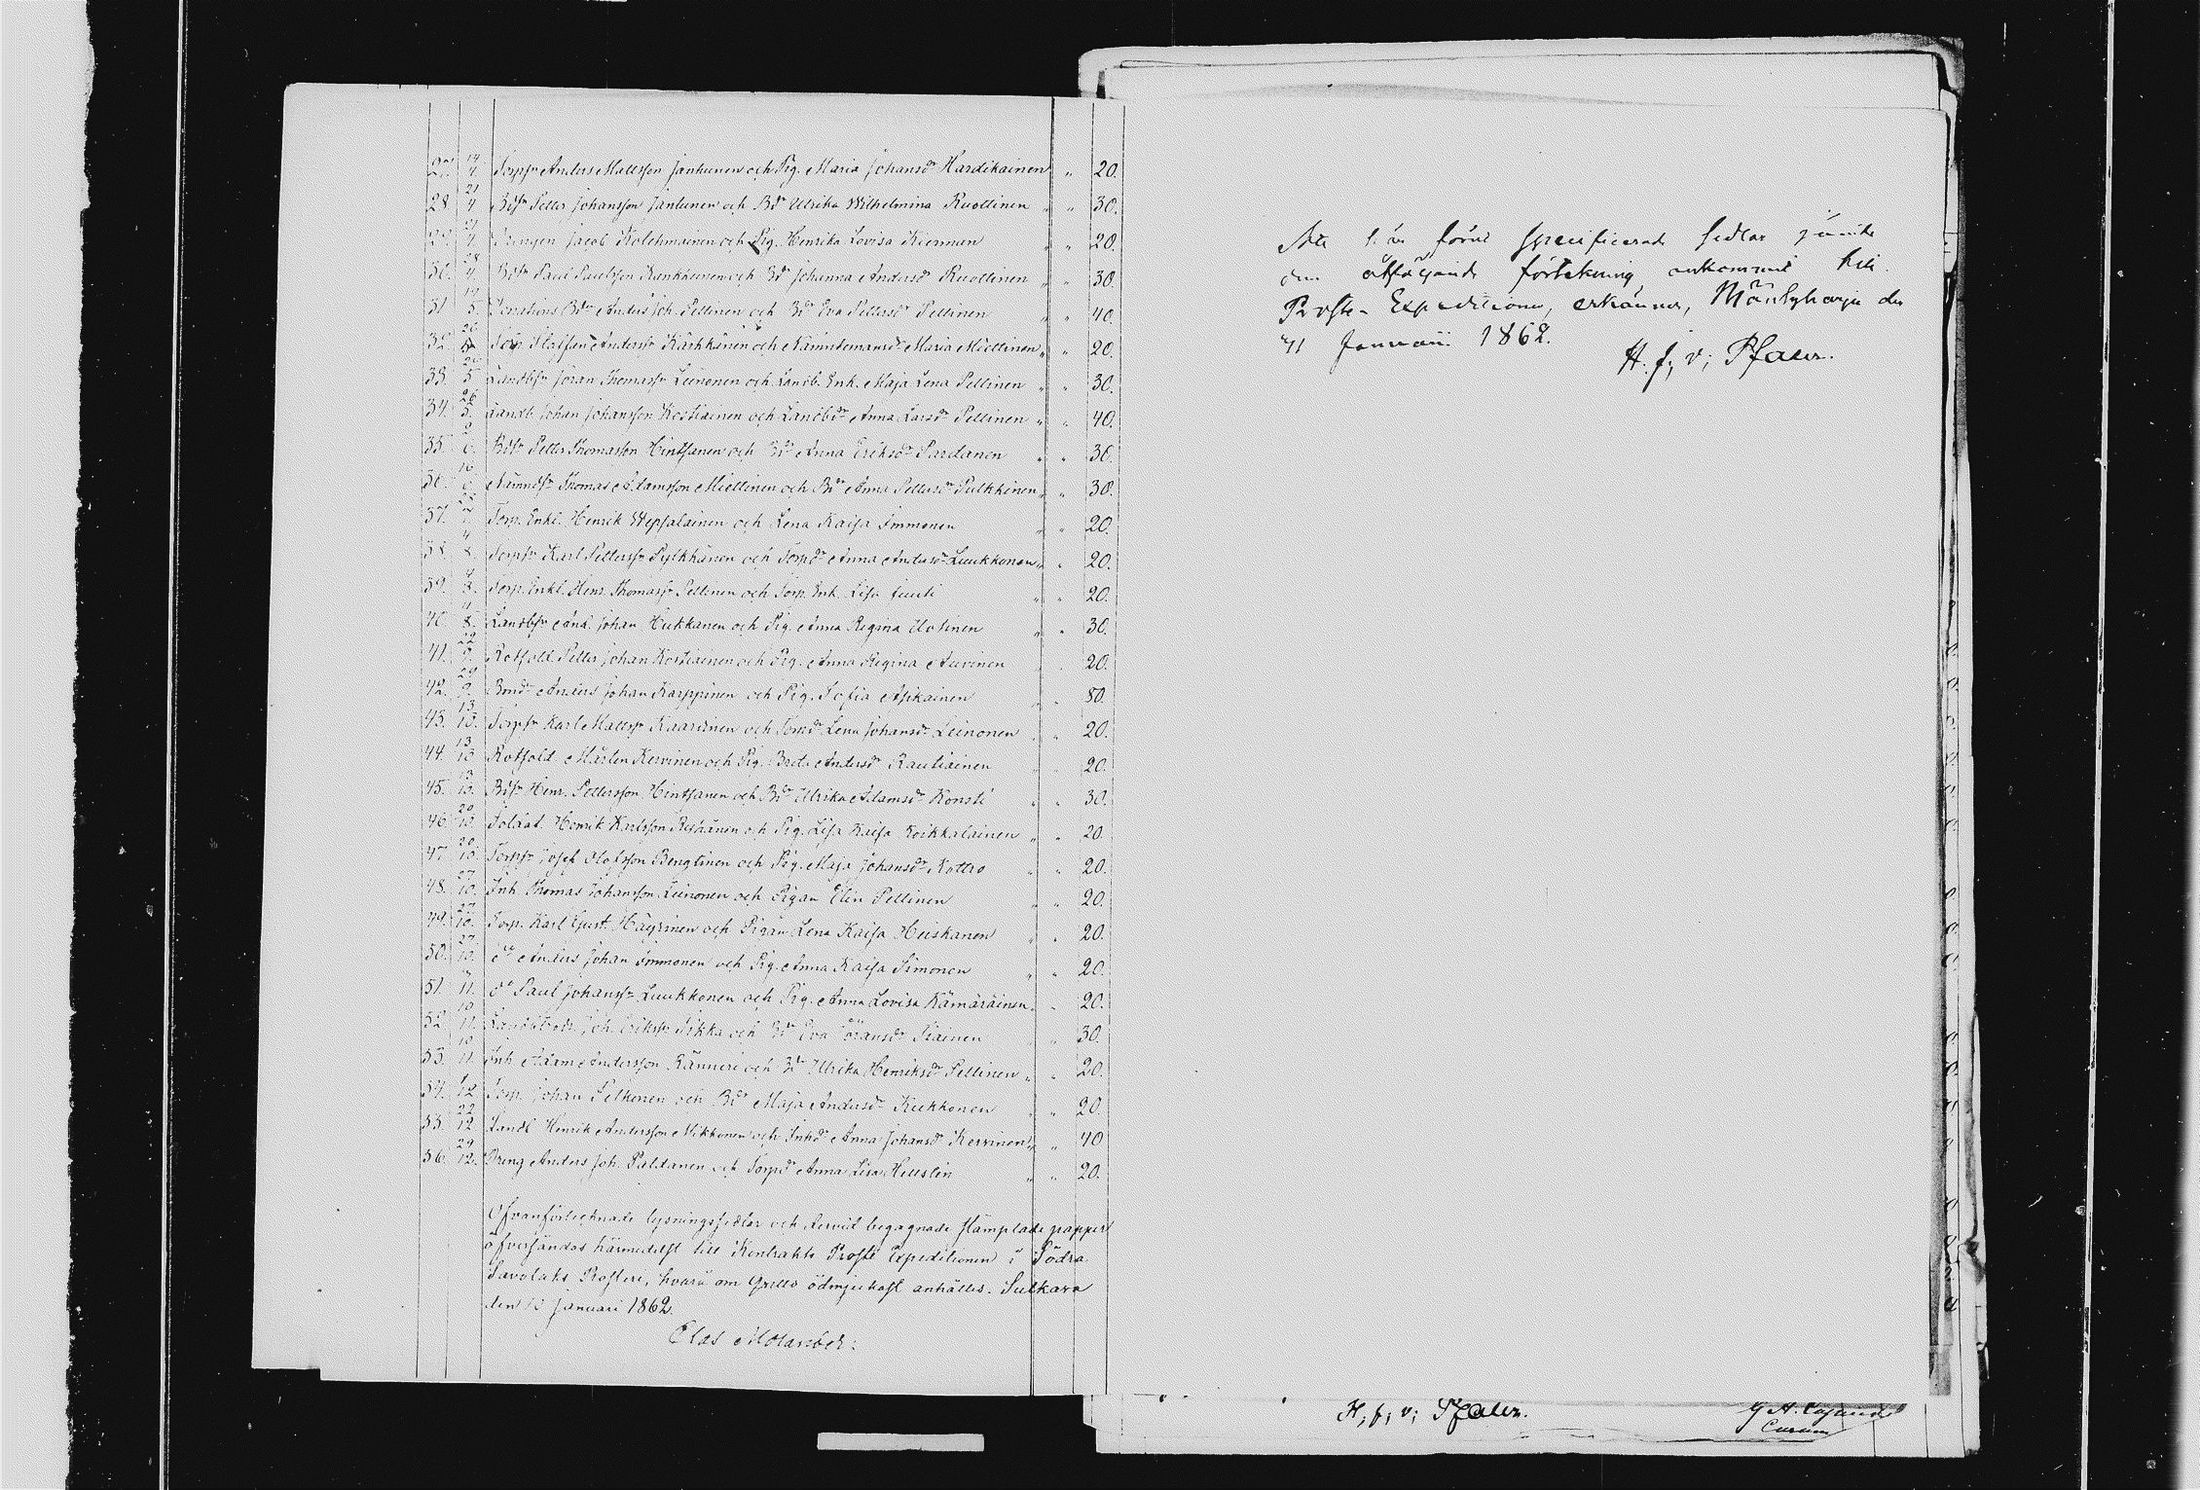 27. 14/4. Torpsn Anders Mattsson Janhunen och Pig. Maria Johansdr Hardikainen " 20.
28 21/4. Bdsn Petter Johansson Janhunen och Bdr Ulrika Wilhelmina Ruottinen " " 30.
29. 21/4. Drengen Jacob Kolehmainen och Pig. Henrika Lovisa Kiernnen " " 20.
30. 28/4. Bdsn Paul Paulsson Kankkunen och Bdr Johanna Andersdr Ruottinen " " 30.
31 19/5. Bdr Anders Joh. Pellinen och Bdr Eva Pettersdr Pellinen " " 40.
32 26/5 Torp. Staffan Anderssn Kärkkänen och Nämndemansdr Maria Miettinen " " 20.
33. 26/5 Landbsn Jöran Thomassn Leinonen och Landb. Enk. Maja Lena Pellinen " " 30.
34. 26/5. Landb. Johan Johansson Kostiainen och Landbdr Anna Larsdr Pellinen " " 40.
35 9/6. Bdsn Petter Thomasson Hintsanen och Bdr Anna Eriksdr Pardanen " " 30.
36. 16/6. Nämndsn Thomas Adamsson Miettinen och Bdr Anna Pettersdr Pulkkinen " " 30.
37. 7. Torp. Enkl. Henrik Wepsalainen och Lena Kaisa Immonen " " 20.
38. 4/8. Torpsn Karl Petterssn Pylkkänen och Torpdr Anna Andersdr Luukkonen " " 20.
39. 4/8. Torp. Enkl. Henr. Thomassn Pellinen och Torp. Enk. Lisa Juuti " " 20.
40. 11/8. Landbsn And. Johan Hukkanen och Pig. Anna Regina Uotinen " " 30.
41. 22/9. Rotsold. Petter Johan Kostiainen och Pig. Anna Regina Auvinen " 20.
42. 29/9. Bond. Anders Johan Karppinen och Pig. Sofia Asikainen " " 80.
43. 13/10. Torpsn Karl Mattssn Kaartinen och Torpdr Lena Johansdr Leinonen " " 20.
44. 13/10 Rotsold. Mårten Kervinen och Pig. Brita Andersdr Rautiainen " 20.
45. 13/10. Bdsn Henr. Pettersson Hintsanen och Bdr Ulrika Adamsdr Konsti " " 30.
46. 20/10. Soldat. Henrik Karlsson Reskänen och Pig. Lisa Kaisa Koikkalainen " " 20.
47 20/10. Torpsn Josef Olofsson Bengtinen och Pig. Maja Johansdr Kottro " " 20.
48. 27/10. Inh. Thomas Johansson Leinonen och Pigan Elin Pellinen " " 20.
49. 27/10. Torp. Karl Gust. Häyrinen och Pigan Lena Kaisa Heiskanen " " 20.
50. 27/10. do Anders Johan Immonen och Pig. Anna Kaisa Simonen " " 20.
51. 11. do Paul Johanssn Luukkonen och Pig. Anna Lovisa Kämäräinen " " 20.
52. 10/11. Joh. Erikssn Sikka och Bdr Eva Göransdr Siainen " 30.
53. 10/11. Inh. Adam Andersson Känneri och Bdr Ulrika Henriksdr Pellinen " " 20.
54. 1/12 Torp. Johan Pelkonen och Bdr Maja Andersdr Kukkonen " " 20.
55. 22/12 Landb. Henrik Andersson Mikkonen och Inhdr Anna Johansdr Kervinen " " 40
56. 29/12. Dreng Anders Joh. Paldanen och Torpdr Anna Lisa Hellstén " " 20.
Ofvanförtecknade lysningssedlar och dervid begagnade stämplade papper
öfversändas härmedelst till Kontrakts Prosts Expeditionen i Södra
Savolaks Prosteri, hvarå om Qvitto ödmjukast anhålles. Sulkava
den 10 Januari 1862.
Clas Molander.
Att här förut specificerade sedlar jämte
den åtföljande förtekning ankommit till
Prosts-Expeditionen, erkännes, Mäntyharju den
21 Januarii 1862.
H. f; v; Pfaler.
H; f; v; Pfaler.